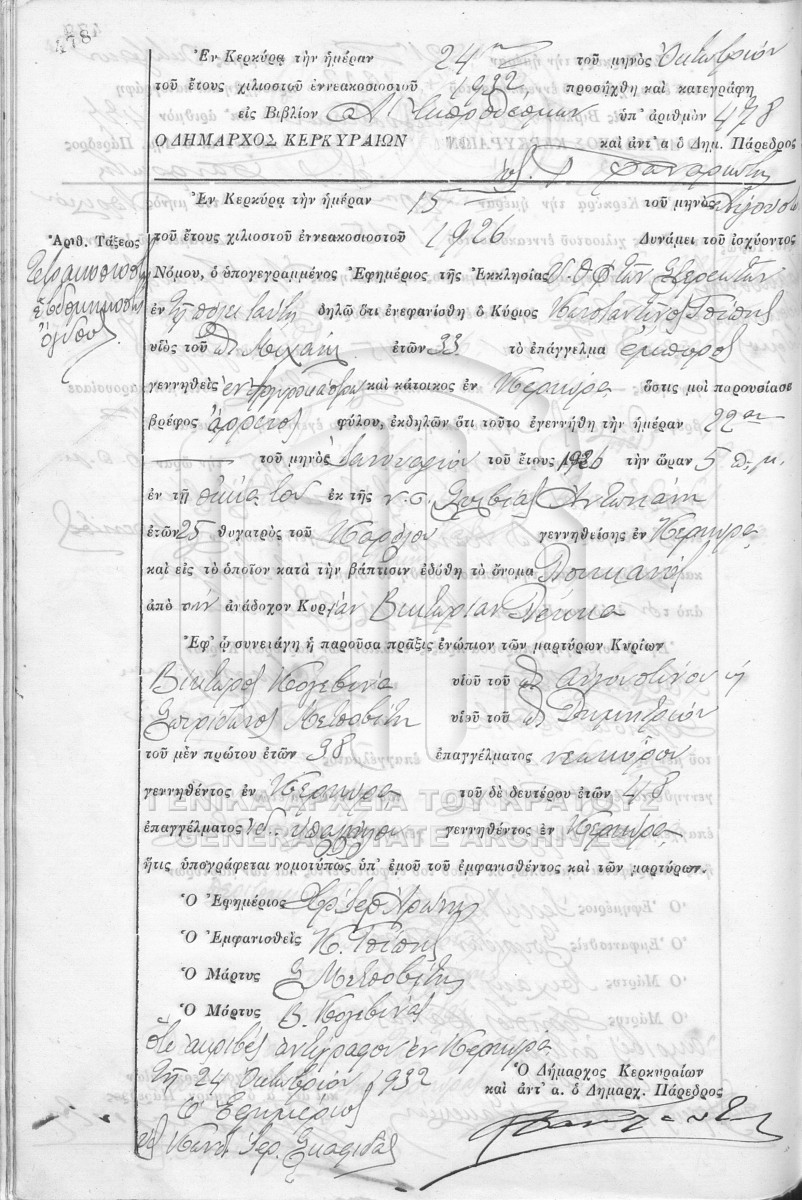 478
Ἐν Κερκύρᾳ τὴν ἡμέραν 24ην τοῦ μηνὸς Ὀκτωβρίου
τοῦ ἔτους χιλιοστοῦ ἐννεακοσιοστοῦ 1932, προσήχθη καὶ κατεγράφη
εἰς Βιβλίον Α' ἐκπροθέσμων ὑπ' ἀριθμὸν 478
Ο ΔΗΜΑΡΧΟΣ ΚΕΡΚΥΡΑΙΩΝ καὶ ἀντ' α ὁ Δημ. Πάρεδρος
Ἐν Κερκύρᾳ τὴν ἡμέραν 15 τοῦ μηνὸς
Ἀριθ. Τάξεως
τοῦ ἔτους χιλιοστοῦ ἐννεακοσιοστοῦ 1926 Δυνάμει τοῦ ἰσχύοντος
Νόμου, ὁ ὑπογεγραμμένος Ἐφημέριος τῆς Ἐκκλησίας
ἐν τῇ πόλει ταύτῃ δηλῶ ὅτι ἐνεφανίσθη ὁ Κύριος Κωνσταντῖνος Τσίπης
υἱὸς τοῦ Μιχαὴλ ἐτῶν 33 τὸ ἐπάγγελμα ἔμπορος
γεννηθεὶς ἐν Ἀργυροκάστρῳ καὶ κάτοικος ἐν Κερκύρᾳ ὅστις μοὶ παρουσίασε
βρέφος ἄρρενος φύλου, ἐκδηλῶν ὅτι τοῦτο ἐγεννήθη τὴν ἡμέραν 22αν
τοῦ μηνὸς Ἰανουαρίου τοῦ ἔτους 1926 τὴν ὥραν 5 π.μ.
ἐν τῇ οἰκίᾳ του ἐκ τῆς ν. σ.
ἐτῶν 25 θυγατρὸς τοῦ Καρόλου γεννηθείσης ἐν Κερκύρᾳ
καὶ εἰς τὸ ὁποῖον κατὰ τὴν βάπτισιν ἐδόθη τὸ ὄνομα
ἀπὸ τὴν ἀνάδοχον Κυρίαν Βικτωρίαν
Ἐφ' ᾧ συνετάγη ἡ παροῦσα πρᾶξις ἐνώπιον τῶν μαρτύρων Κυρίων
Βίκτωρος Κολεβινᾶ υἱοῦ τοῦ Αὐγουστίνου ἢ
Σπυρίδωνος Μεταβίτη υἱοῦ τοῦ Δημητρίου
τοῦ μὲν πρώτου ἐτῶν 38 ἐπαγγέλματος
γεννηθέντος ἐν Κερκύρᾳ τοῦ δὲ δευτέρου ἐτῶν 48
ΓΕΝΙΚΑ ΑΡΧΕΙΑ ΤΟΥ ΚΡΑΤΟΥΣ
ἐπαγγέλματος ἰδ. ὑπαλλήλου γεννηθέντος ἐν Κερκύρᾳ
GENERAL STATE ARCHIVES
ἥτις ὑπογράφεται νομοτύπως ὑπ' ἐμοῦ τοῦ ἐμφανισθέντος καὶ τῶν μαρτύρων.
Ὁ Ἐφημέριος
Ὁ Ἐμφανισθεὶς Κ. Τσίπης
Ὁ Μάρτυς Σ Μεταβίτης
Ὁ Μάρτυς Β. Κολεβινᾶς
Ὅτι ἀκριβὲς ἀντίγραφον ἐν Κερκύρᾳ
τῇ 24 Ὀκτωβρίου 1932
Ὁ Δήμαρχος Κερκυραίων
καὶ ἀντ' α. ὁ Δημαρχ. Πάρεδρος
Ὁ Ἐφημέριος